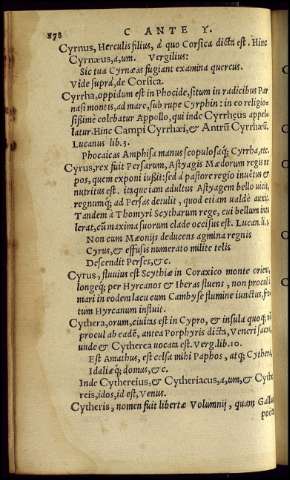 878 C ANTE Y.
Cyrnus, Herculis filius, à quo Corsica dicta est. Hinc
Cyrnæus,a,um. Vergilius:
Sic tua Cyrnæas fugiant examina quercus.
Vide suprà, de Corsica.
Cyrrha, oppidum est in Phocide, situm in radicibus Par
nasi montis, ad mare, sub rupe Cyrphin: in eo religio-
sissimè colebatur Appollo, qui inde Cyrrhęus appel-
latur. Hinc Campi Cyrrhæi, & Antrũ Cyrrhæũ.
Lucanus lib. 3.
Phocaicas Amphisa manus scopulosaq; Cyrrha,etc.
Cyrus, rex fuit Persarum, Astyagis Mædorum regis
pos, quem exponi iußit: sed à pastore regio inuētus &
nutritus est. itaque iam adultus Astyagem bello uicit,
regnumq; ad Persas detulit, quod etiam ualdè auxit.
Tandem à Thomyri Scytharum rege, cui bellum intu
lerat, cũ maxima suorum clade occisus est. Lucan.li.
Non cum Mæonijs deducens agmina regnis
Cyrus, & effusis numerato milite telis
Descendit Perses, &c.
Cyrus, fluuius est Scythiæ in Coraxico monte oriens,
longeq; per Hyrcanos & Iberas fluens, non procul à
mari in eodem lacu cum Cambyse flumine iunctus,
tum Hyrcanum influit.
Cythera, orum, ciuitas est in Cypro, & insula quoq;
procul ab eadē, antea Porphyris dicta, Veneri sacra,
unde & Cytherea uocata est. Verg.lib.10.
Est Amathus, est celsa mihi Paphos, atq; Cythera,
Idaliæq; domus, &c.
Inde Cythereius, & Cytheriacus,a,um, & Cythe
reis, idos, id est, Venus.
Cytheris, nomen fuit libertæ Volumnij, quam Gallus
poëta